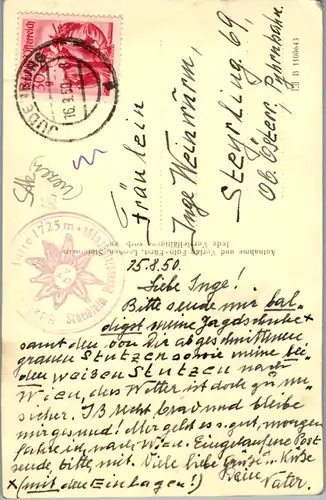 Fräulein
Inge Weinwurm,
Steyrling 69,
Ob. Österr. Pyhrnbahn.
B 1100645
Aufnahme und Verlag Foto-Fürst, Leoben, Steiermark
Jede Vervielfältigung verboten
JUDENBURG
16.8.50
Österreich
1725 m
15.8.50.
Liebe Inge!
Bitte sende mir bal-
digst meine Jagdschuhe x
samt den von Dir abgeschnittenen
grauen Stutzen sowie meine bei-
den weißen Stutzen nach
Wien, das Wetter ist doch zu un-
sicher. Iß recht brav und bleibe
mir gesund! Mir geht es s. gut, morgen
fahre ich nach Wien. Eingelaufene Post
sende, bitte, mit. Viele liebe Grüße u. Küße
Dein Vater.
x (mit den Einlagen!)